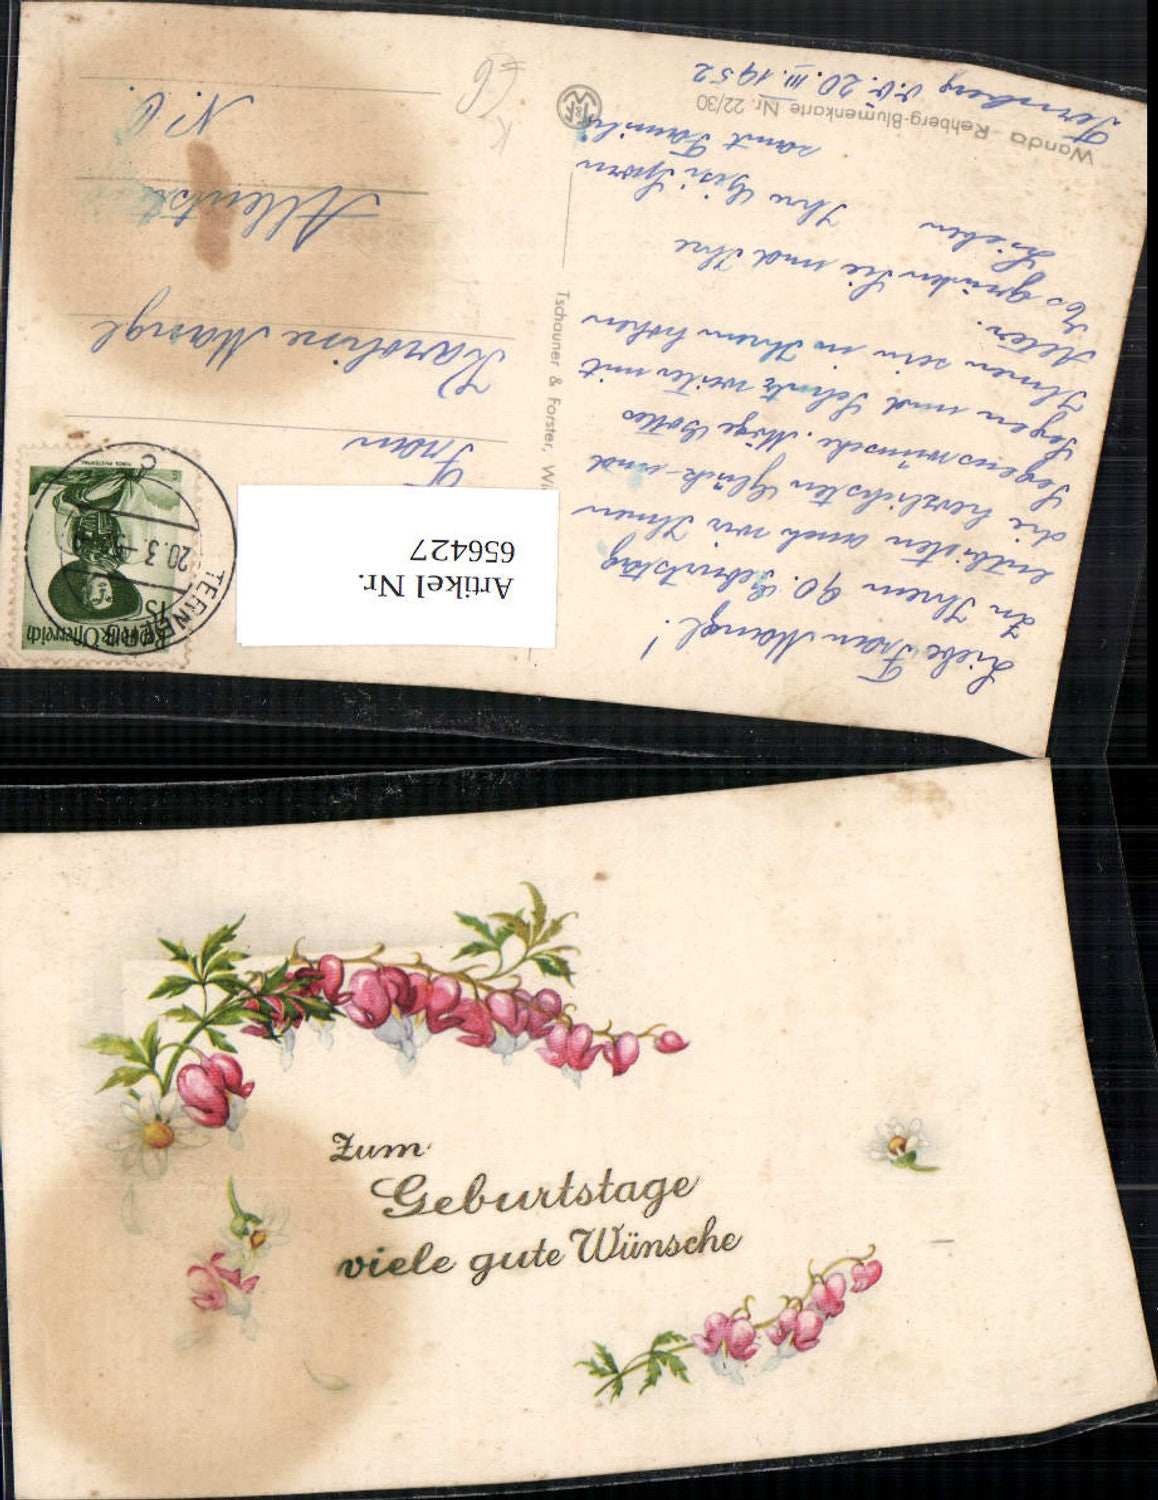 Wanda - Rehberg-Blumenkarte Nr. 22/30
Ternberg 20. III. 1952
Liebe Frau Mangl!
Zu Ihrem 90. Geburtstag
entbieten auch wir Ihnen
die herzlichsten Glück- und
Segenswünsche. Möge Gottes
Segen und Schutz weiter mit
Ihnen sein in Ihrem hohen
Alter.
Es grüßen Sie und Ihre
Lieben Ihre
samt Familie
Tschauner & Forster, Wi
Frau
Karoline Mangl
N. Ö.
Republik Österreich
1 S
TERNBERG
20.3.
c
Artikel Nr.
656427
Zum
Geburtstage
viele gute Wünsche